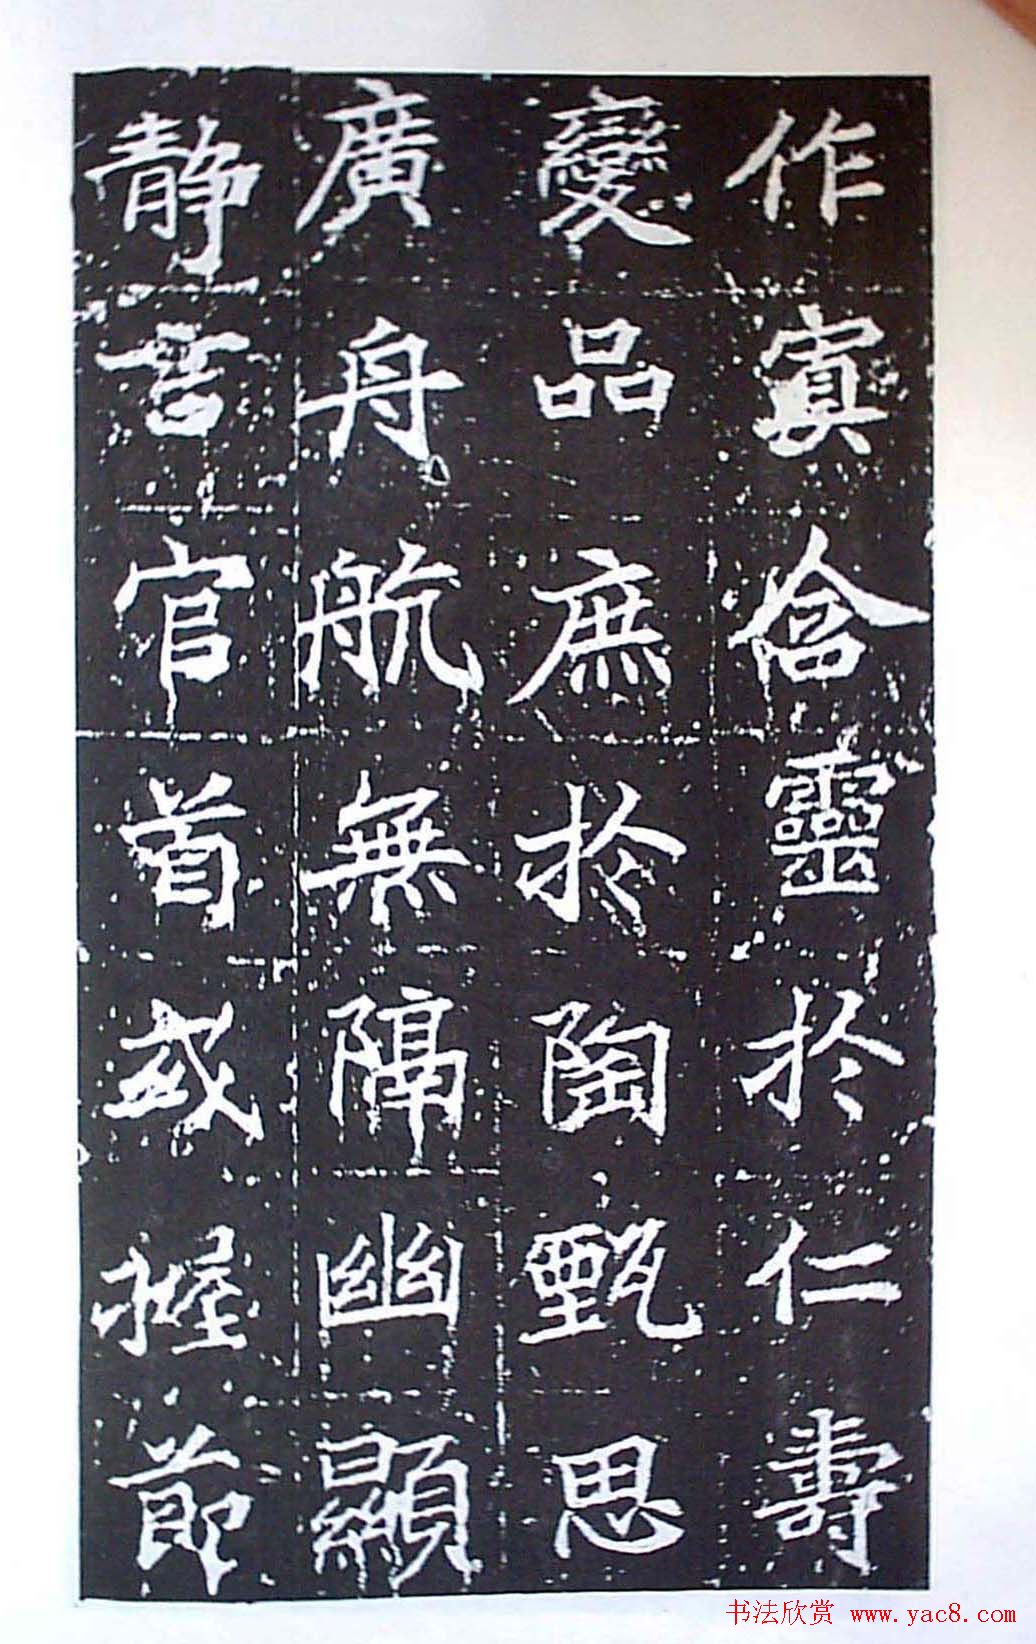 作寘含靈於仁壽
變品庶於陶甄思
廣舟航無隔幽顯
静言官首或握節
书法欣赏 www.yac8.com